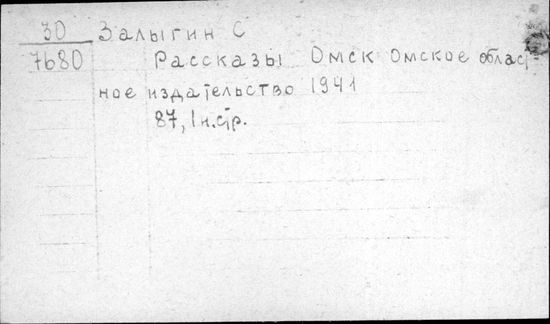 30 Залыгин С
7680 Рассказы Омск Омское област
ное издательство 1941
87, 1 н.стр.